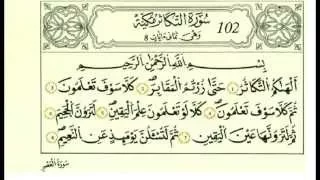 سُورَةُ التَّكَاثُرِ مَكِّيَّة
102
وَهِيَ ثَمَانِي آيَات 8
بِسْمِ اللَّهِ الرَّحْمَٰنِ الرَّحِيمِ
أَلْهَاكُمُ التَّكَاثُرُ ١ حَتَّىٰ زُرْتُمُ الْمَقَابِرَ ٢ كَلَّا سَوْفَ تَعْلَمُونَ ٣
ثُمَّ كَلَّا سَوْفَ تَعْلَمُونَ ٤ كَلَّا لَوْ تَعْلَمُونَ عِلْمَ الْيَقِينِ ٥ لَتَرَوُنَّ الْجَحِيمَ ٦
ثُمَّ لَتَرَوُنَّهَا عَيْنَ الْيَقِينِ ٧ ثُمَّ لَتُسْأَلُنَّ يَوْمَئِذٍ عَنِ النَّعِيمِ ٨
سُورَةُ الْعَصْرِ